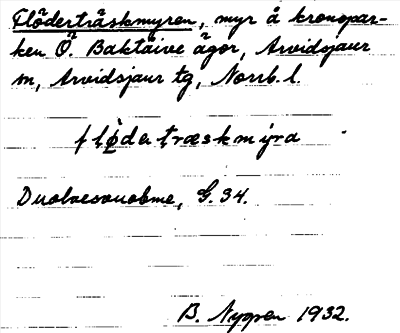 Flöderträskmyren, myr å kronopar-
ken Ö. Baktåive ägor, Arvidsjaur
sn, Arvidsjaur tg, Norrb. l.
flø̀dertræskmýra
Duolvesvuobme, G. 34.
B. Nygren 1932.